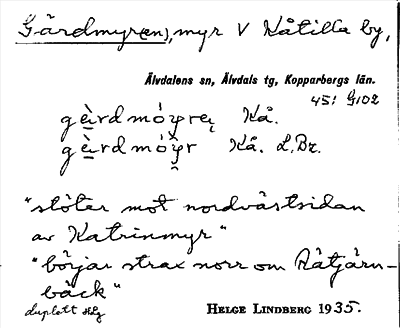 Gårdmyr(en), myr V Kåtilla by,
Älvdalens sn, Älvdals tg, Kopparbergs län.
45: G102
gèrdmóyreɩ Kå.
gèrdmóy̭r Kå. L.Br.
"stöter mot nordvästsidan
av Katrinmyr"
"börjar strax norr om Råtjärn-
bäck"
duplett
HELGE LINDBERG 1935.